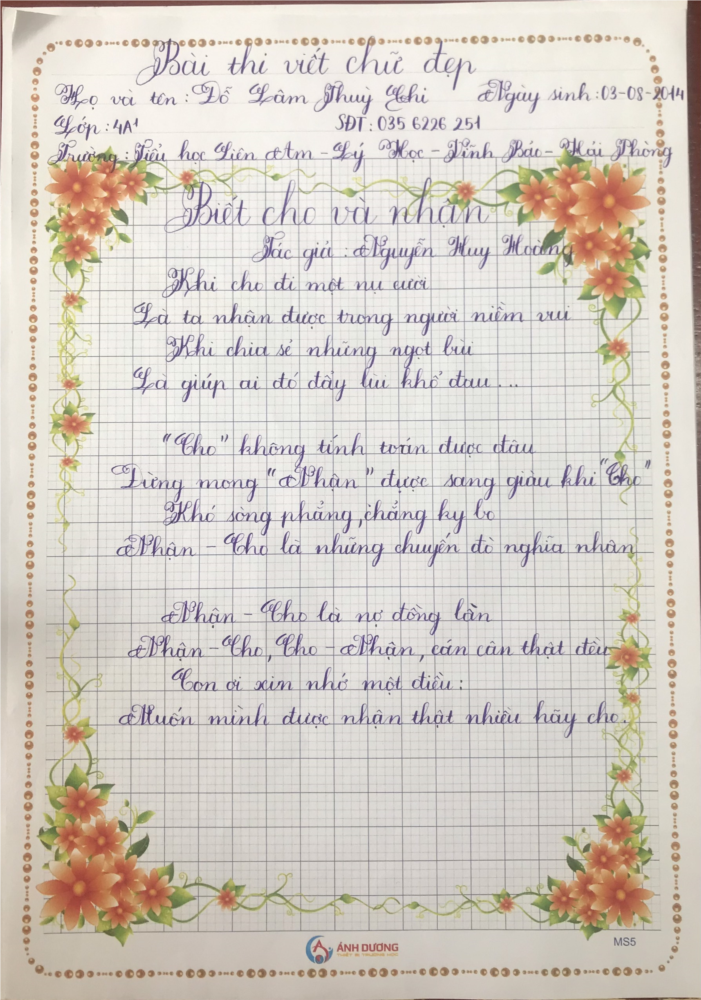 Bài thi viết chữ đẹp
Họ và tên: Đỗ Lâm Thuỳ Chi Ngày sinh: 03-08-2014
Lớp: 4A1 SĐT: 035 6226 251
Trường: Tiểu học Liên Am - Lý Học - Vĩnh Bảo - Hải Phòng
Biết cho và nhận
Tác giả: Nguyễn Huy Hoàng
Khi cho đi một nụ cười
Là ta nhận được trong người niềm vui
Khi chia sẻ những ngọt bùi
Là giúp ai đó đẩy lùi khổ đau...
"Cho" không tính toán được đâu
Đừng mong "Nhận" được sang giàu khi "Cho"
Khó sòng phẳng, chẳng ky bo
Nhận - Cho là những chuyến đò nghĩa nhân
Nhận - Cho là nợ đồng lần
Nhận - Cho, Cho - Nhận, cán cân thật đều
Con ơi xin nhớ một điều:
Muốn mình được nhận thật nhiều hãy cho.
ÁNH DƯƠNG
THIẾT BỊ TRƯỜNG HỌC
MS5